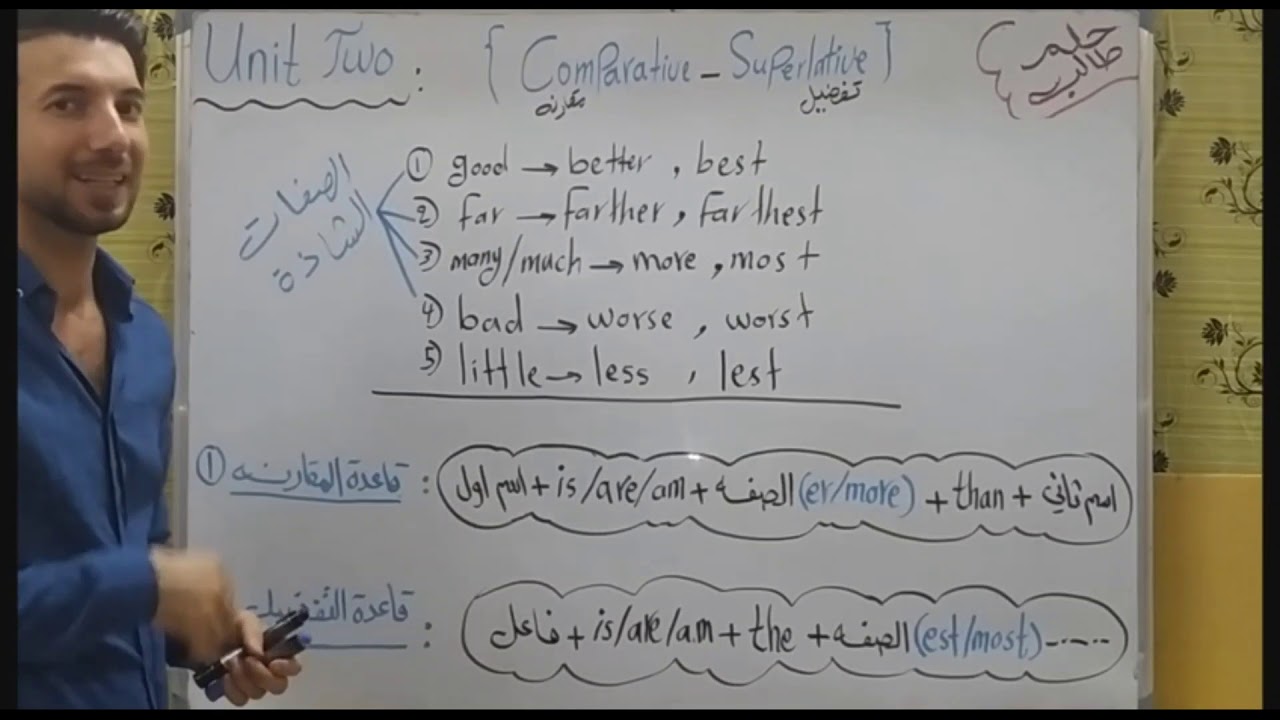 Unit Two :
{ Comparative - Superlative }
مقارنه
تفضيل
حلم
طالب
الصفات
الشاذة
① good → better , best
2) far → farther , farthest
3) many/much → more , most
4) bad → worse , worst
5) little → less , lest
① قاعدة المقارنه :
اسم اول + is/are/am + الصفه (er/more) + than + اسم ثاني
قاعدة :
فاعل + is/are/am + the + الصفه (est/most) -----